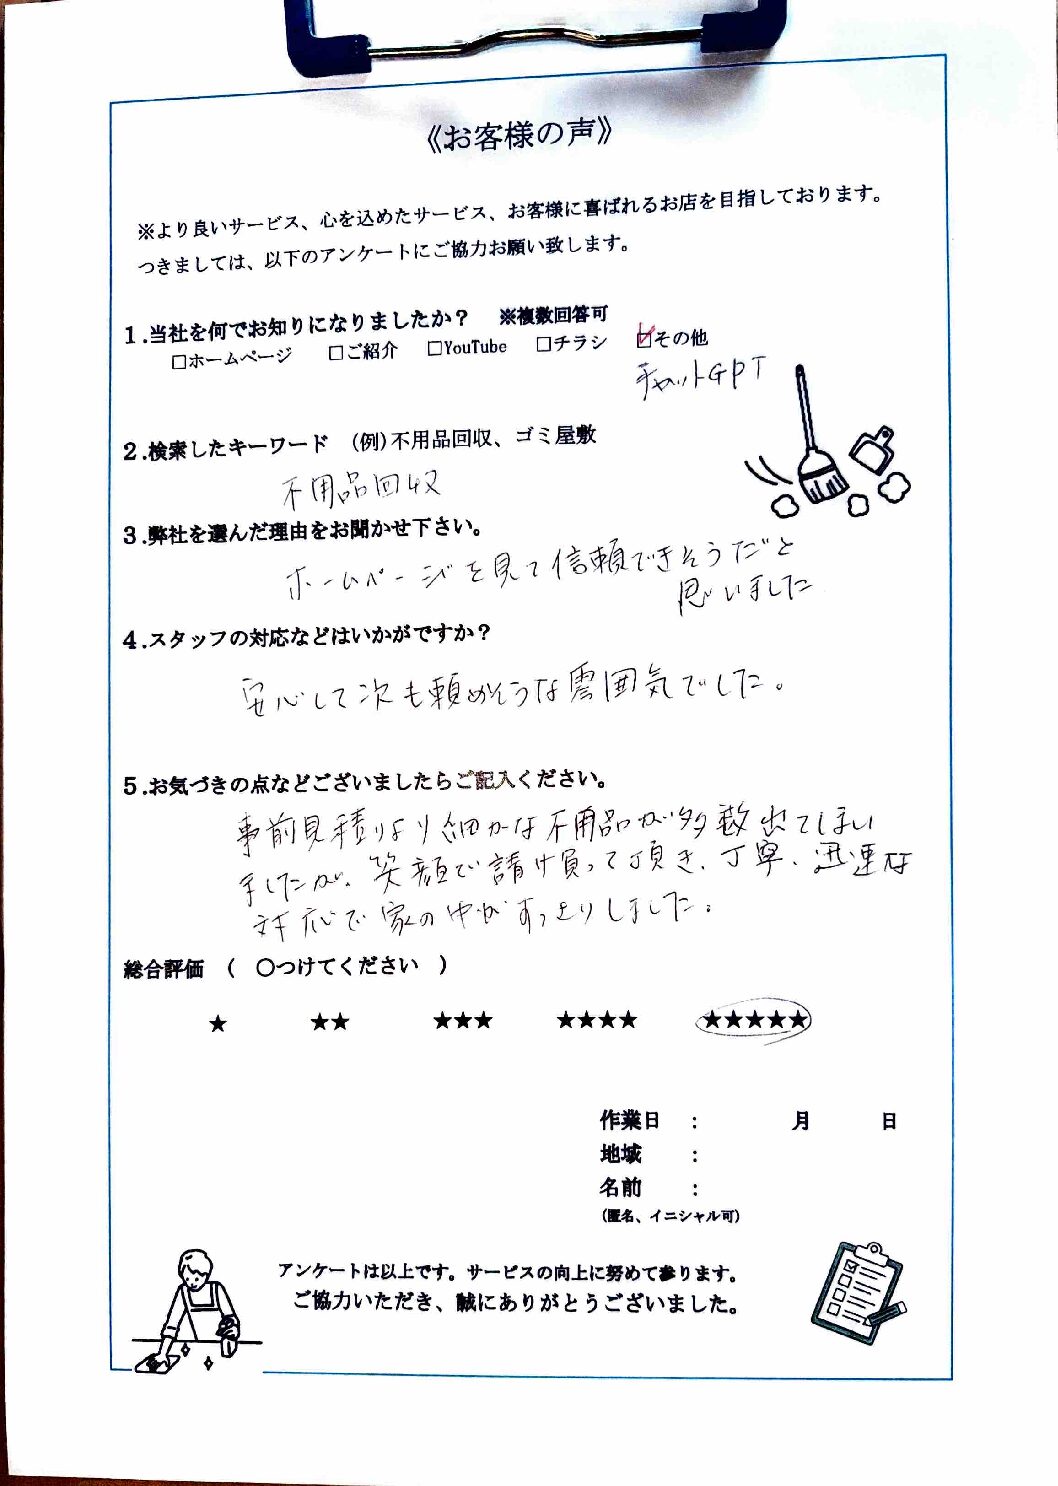 《お客様の声》
※より良いサービス、心を込めたサービス、お客様に喜ばれるお店を目指しております。
つきましては、以下のアンケートにご協力お願い致します。
1.当社を何でお知りになりましたか？ ※複数回答可
□ホームページ □ご紹介 □YouTube □チラシ ☑その他
チャットGPT
2.検索したキーワード (例)不用品回収、ゴミ屋敷
不用品回収
3.弊社を選んだ理由をお聞かせ下さい。
ホームページを見て信頼できそうだと
思いました
4.スタッフの対応などはいかがですか？
安心して次も頼めそうな雰囲気でした。
5.お気づきの点などございましたらご記入ください。
事前見積りより細かな不用品が多数出てしまい
ましたが、笑顔で請け負って頂き、丁寧、迅速な
対応で家の中がすっきりしました。
総合評価 ( 〇つけてください )
★ ★★ ★★★ ★★★★ ★★★★★
作業日 : 月 日
地域 :
名前 :
(匿名、イニシャル可)
アンケートは以上です。サービスの向上に努めて参ります。
ご協力いただき、誠にありがとうございました。